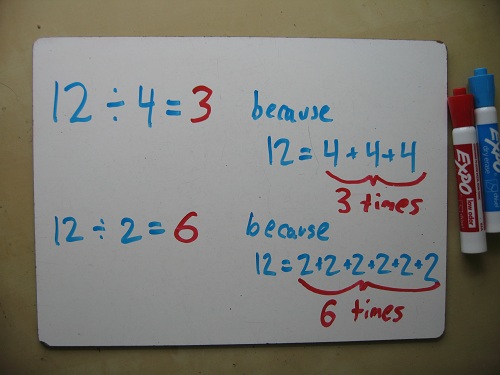 12 ÷ 4 = 3 because
12 = 4 + 4 + 4
3 times
12 ÷ 2 = 6 because
12 = 2+2+2+2+2+2
6 times
EXPO
EXPO